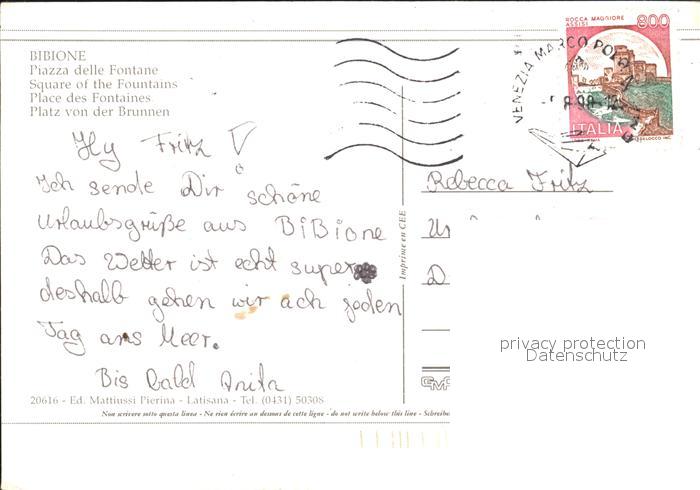 BIBIONE
Piazza delle Fontane
Square of the Fountains
Place des Fontaines
Platz von der Brunnen
Hy Fritz !
Ich sende Dir schöne
Urlaubsgrüße aus BiBione
Das Wetter ist echt super
deshalb gehen wir ach jeden
Tag ans Meer.
Bis bald Anita
20616 - Ed. Mattiussi Pierina - Latisana - Tel. (0431) 50308
Non scrivere sotto questa linea - Ne rien écrire au dessous de cette ligne - do not write below this line - Schreibe
Imprimé en CEE
ROCCA MAGGIORE
ASSISI
800
ITALIA
VENEZIA MARCO POLO
Rebecca Fritz
Ur
D
privacy protection
Datenschutz